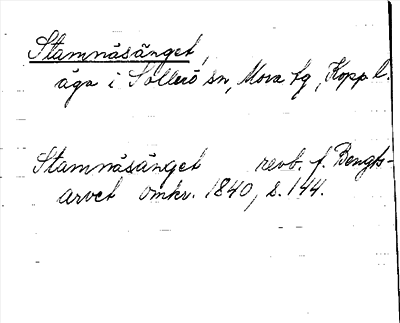 Stamnäsänget,
äga i Sollerö sn, Mora tg, Kopp l.
Stamnäsänget revb. f. Bengts-
arvet omkr. 1840, s. 144.